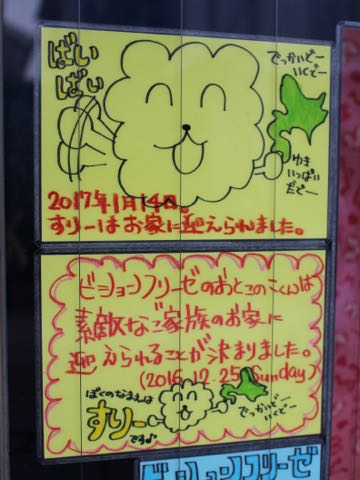 ばい
ばい
でっかいどー
いくでー
ゆき
いっぱい
だどー
2017年1月14日。
すりーはお家に迎えられました。
ビションフリーゼのおとこのこくんは
素敵なご家族のお家に
迎えられることが決まりました。
(2016.12.25 Sunday)
ぼくのなまえは
すりー
ですよ
でっかいどー
いくどー
ビションフリーゼ